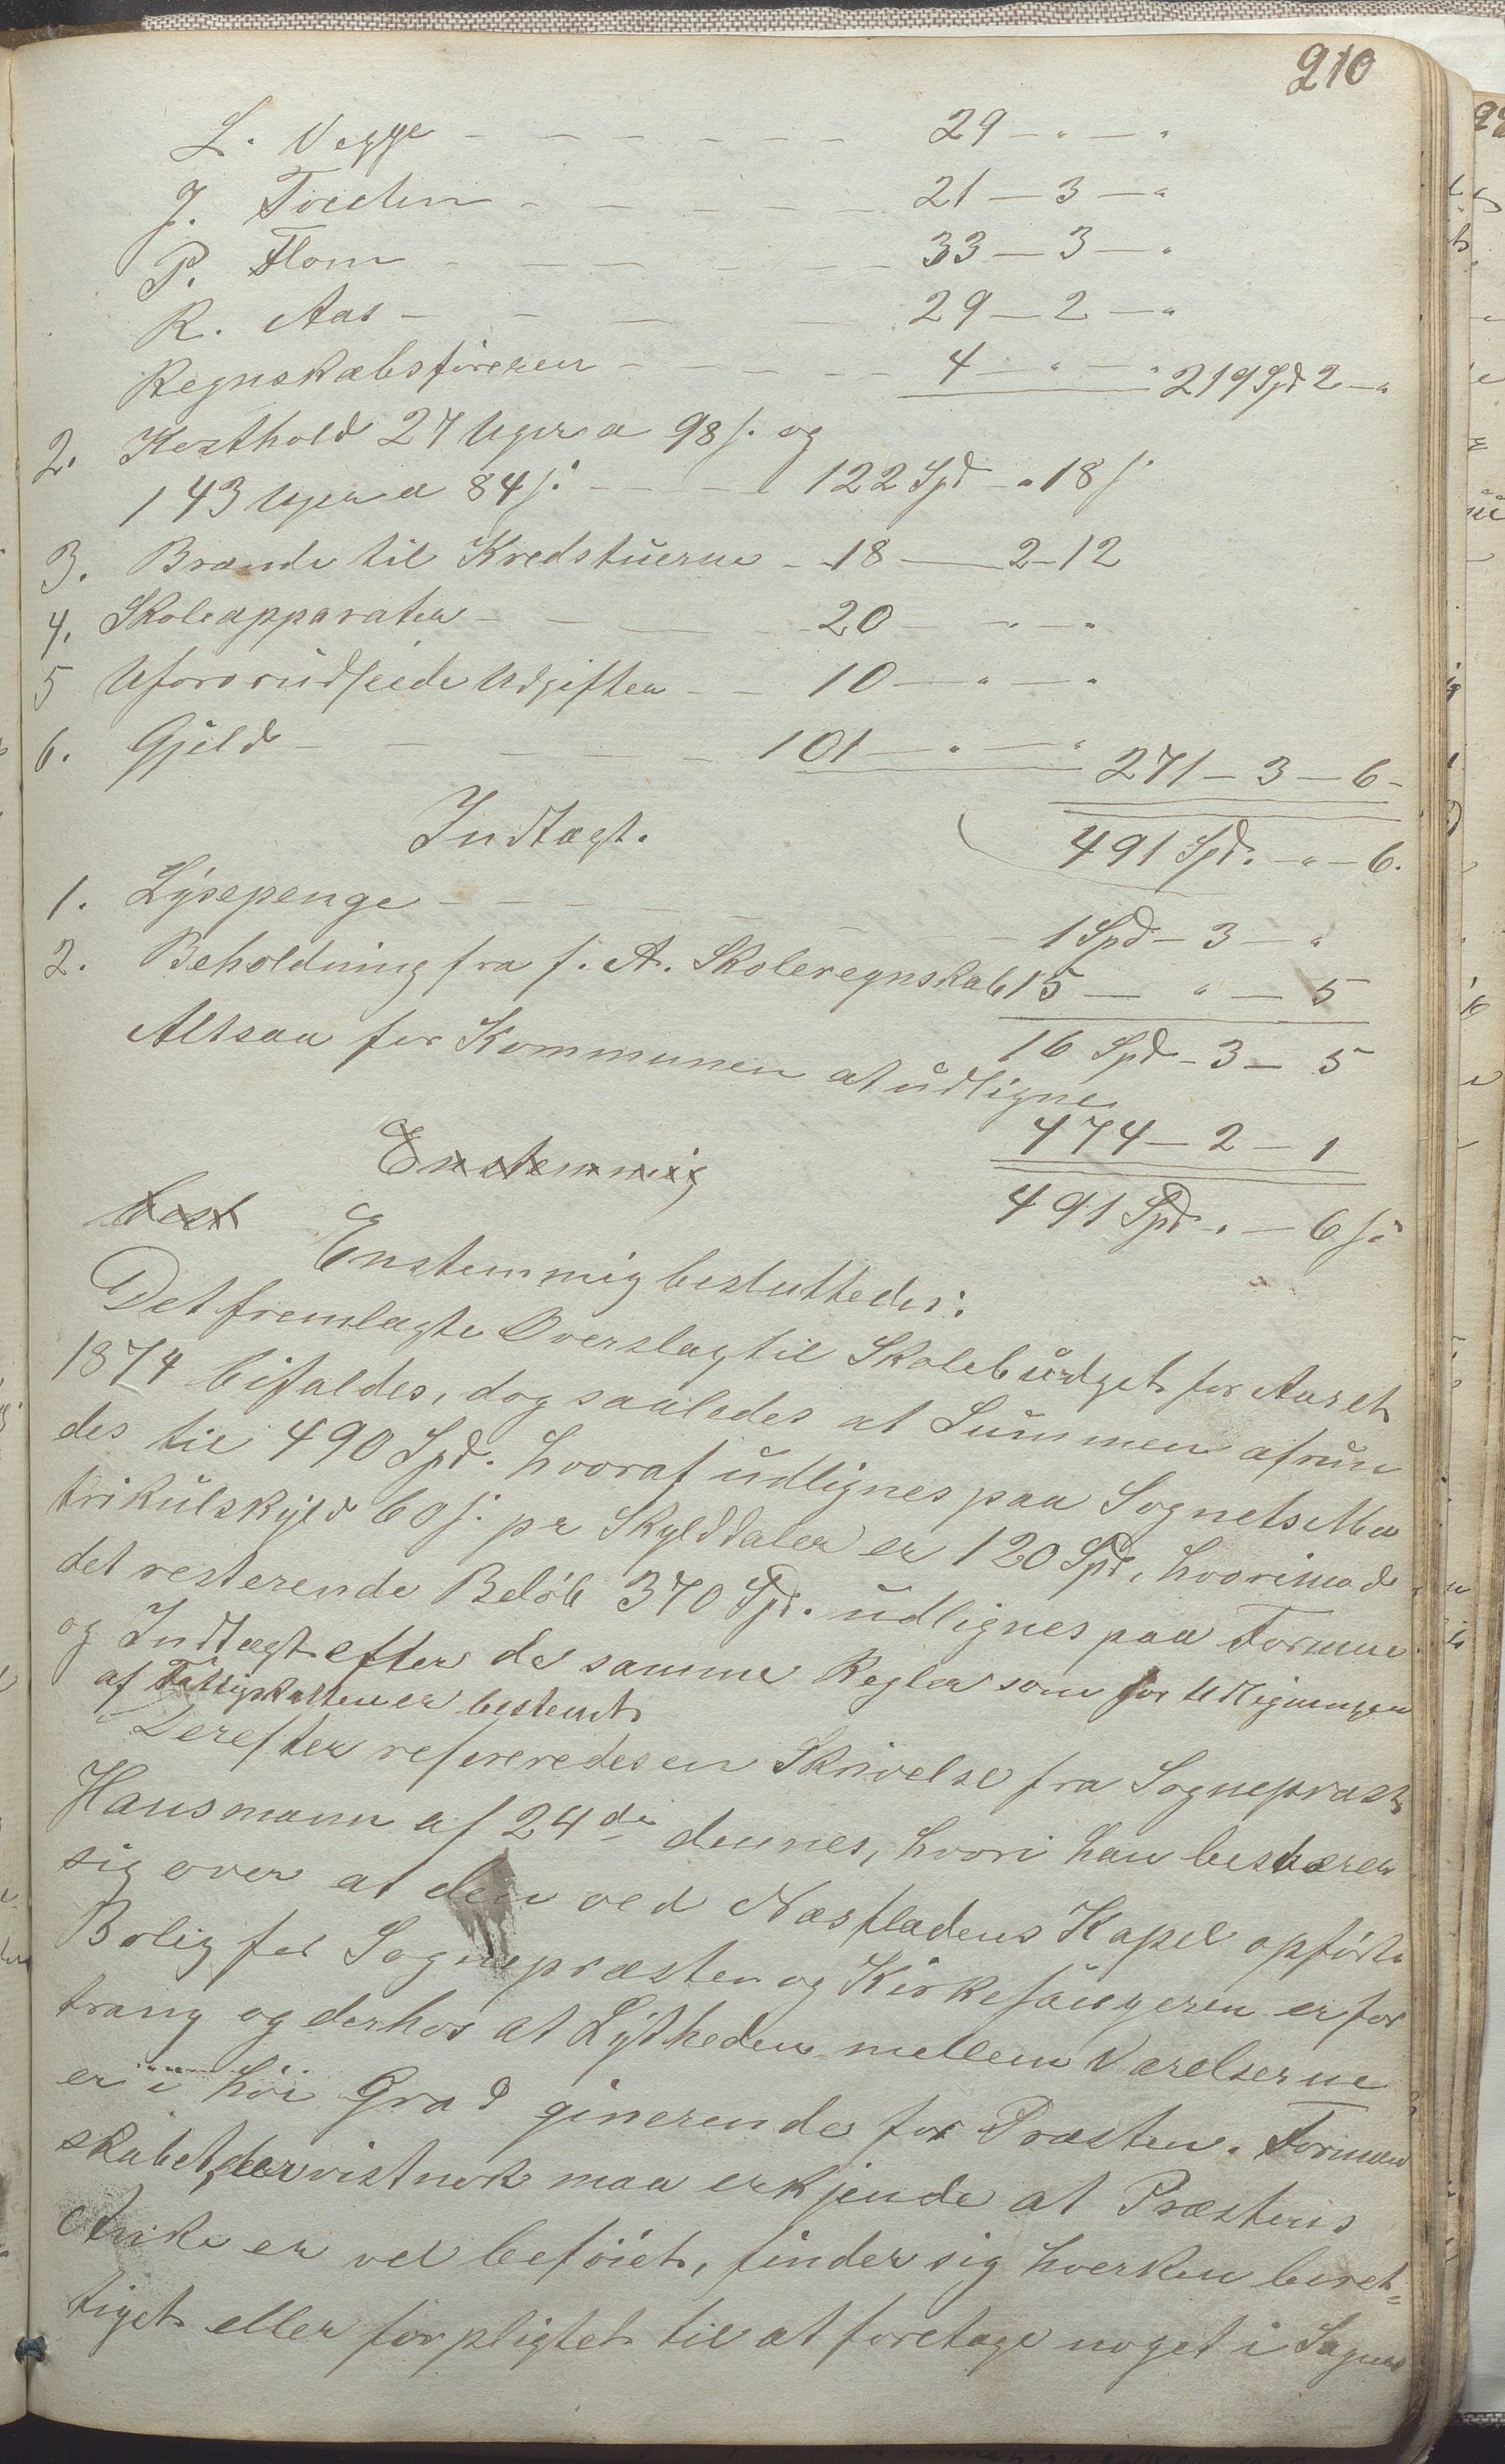 210
L. Vegge — — — — — — 29 — " — "
J. Tveten — — — — — 21 — 3 — "
P. Flom — — — — — — 33 — 3 — "
R. Aas — — — — — 29 — 2 — "
Regnskabsføreren — — — — — 4 — " — " 219 Spd 2 — "
2. Kosthold 27 Uger a 98 s. og
143 Uger a 84 s. — — — 122 Spd — " 18 s
3. Brænde til Kredstuerne — 18 — 2 - 12
4. Skoleapparater — — — — 20 — " — "
5 Uforudseede Udgifter — — 10 — " — "
6. Gjeld — — — — — 101 — " — " 271 — 3 — 6 -
Indtægt. 491 Spd. — " — 6.
1. Lysepenge — — — — — — 1 Spd — 3 — "
2. Beholdning fra f. A. Skoleregnskab 15 — " — 5
16 Spd — 3 — 5
Altsaa for Kommunen at udligne
474 — 2 — 1
Enstemmig
491 Spd. " — 6 s.
best
Enstemmig besluttedes:
Det fremlagte Overslag til Skolebudget for Aaret
1874 bifaldes, dog saaledes at Summen afrun
des til 490 Spd. hvoraf udlignes paa Sognets Ma
trikulskyld 60 s. pr Skylddaler er 120 Spd, hvorimod
det resterende Beløb 370 Spd. udlignes paa Formue
og Indtægt efter de samme Regler som for Udligningen
af Fattigskatten er bestemt
Derefter refereredes en Skrivelse fra Sognepræst
Hausmann af 24de dennes, hvori han besværer
sig over at den ved Næsfladens Kapel opførte
Bolig for Sognepræsten og Kirkesangeren er for
trang og derhos at Lytheden mellem Værelserne
er i høi Grad generende for Præsten. Formænd
skabet, der vistnok maa erkjende at Præstens
Anke er vel beføiet, finder sig hverken beret=
tiget eller forpligtet til at foretage noget i Sagen